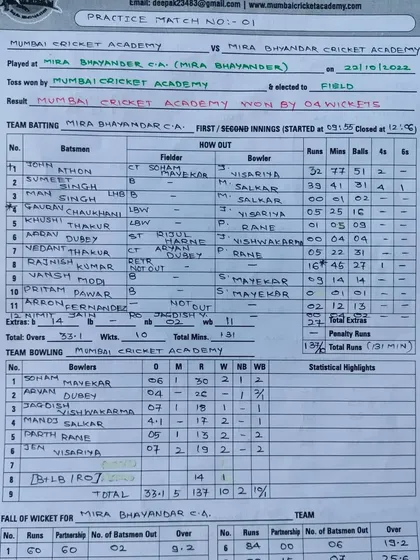 Email: deepak23483@gmail.com www.mumbaicricketacademy.com
PRACTICE MATCH NO:- 01
MUMBAI CRICKET ACADEMY VS MIRA BHAYANDAR CRICKET ACADEMY
Played at MIRA BHAYANDER C.A. (MIRA BHAYANDER) on 29/10/2022
Toss won by MUMBAI CRICKET ACADEMY & elected to FIELD
Result MUMBAI CRICKET ACADEMY WON BY 04 WICKETS
TEAM BATTING MIRA BHAYANDAR C.A. FIRST / SECOND INNINGS (STARTED at 09:55 Closed at
No. Batsmen HOW OUT Fielder Bowler Runs Mins Balls 4s 6s
1 JOHN ATHON CT SOHAM MAYEKAR J. VISARIYA 32 77 51 2 -
2 SUMEET SINGH B - M. SALKAR 39 41 31 4 1
3 MAN SINGH LHB B - M. SALKAR 00 01 02 - -
*4 GAURAV CHAUKHANI LBW - J. VISARIYA 05 25 16 - -
5 KHUSHI THAKUR LBW - P. RANE 01 05 09 - -
6 AARAV DUBEY ST RIJUL HARNE J. VISHWAKARMA 00 04 04 - -
7 VEDANT THAKUR CT ARYAN DUBEY P. RANE 05 22 31 - -
8 RAJNISH KUMAR RETR NOT OUT - - 16* 45 27 1 -
9 VANSH MODI B - S. MAYEKAR 09 14 14 - -
10 PRITAM PAWAR B - S. MAYEKAR 0 01 01 - -
11 ARRON FERNANDEZ - NOT OUT 02 12 13 - -
12 NIMIT JAIN RO JAGDISH V.
Extras: b 14 lb - nb 02 wb 11 27 Total Extras
- Penalty Runs
Total Overs: 33.1 Wkts. 10 Total Mins. 131 137/10 Total Runs (131 MIN)
TEAM BOWLING MUMBAI CRICKET ACADEMY
Bowlers O M R W NB WB Statistical Highlights
1 SOHAM MAYEKAR 06 1 30 2 1 2
2 ARYAN DUBEY 04 - 26 - 1
3 JAGDISH VISHWAKARMA 07 1 18 1 - 1
4 MANOJ SALKAR 4.1 - 17 2 - 1
5 PARTH RANE 05 1 13 2 - 2
6 JEN VISARIYA 07 2 19 2 - 2
7
8 [B+LB / RO] 14 1
9 TOTAL 33.1 5 137 10 2
FALL OF WICKET FOR MIRA BHAYANDAR C.A. TEAM
No. Runs Partnership No. of Batsmen Out Over No. Runs Partnership No. of Batsmen Out Over
1 60 60 02 9.2 6 84 00 06 19.2
07 25.6